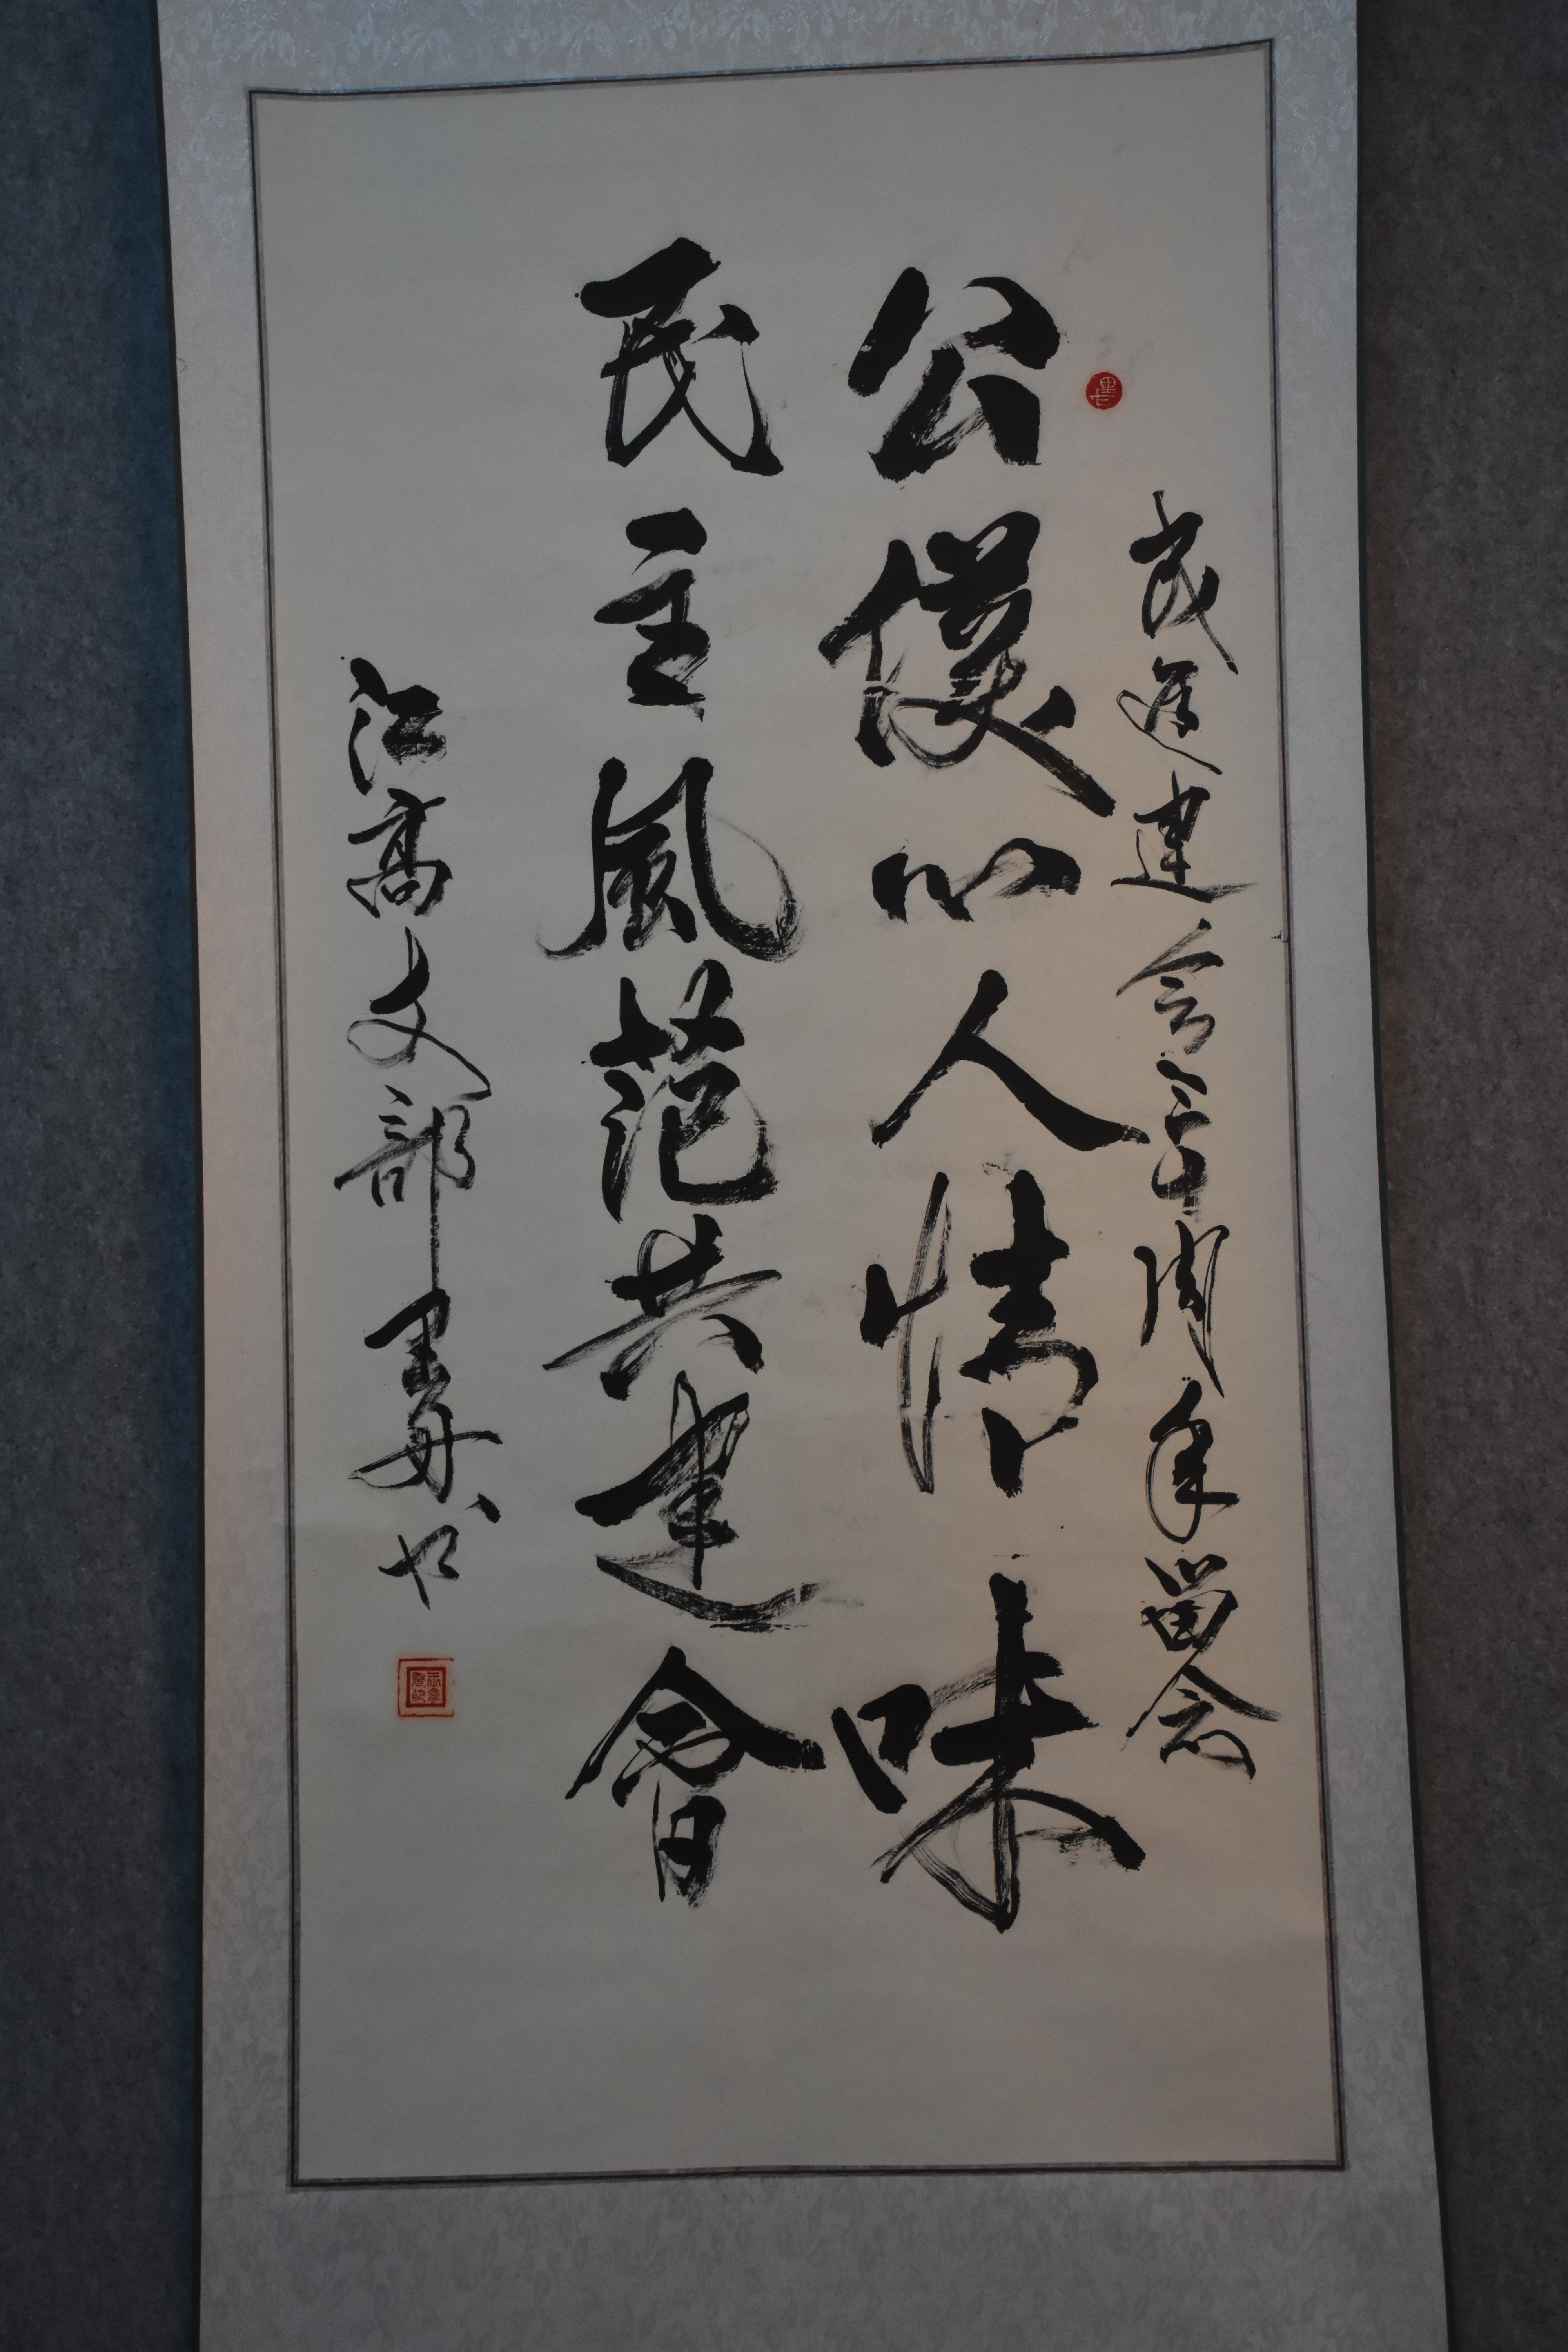 公僕心人情味
民主風范共建會
建會三十周年留念
江高文部書